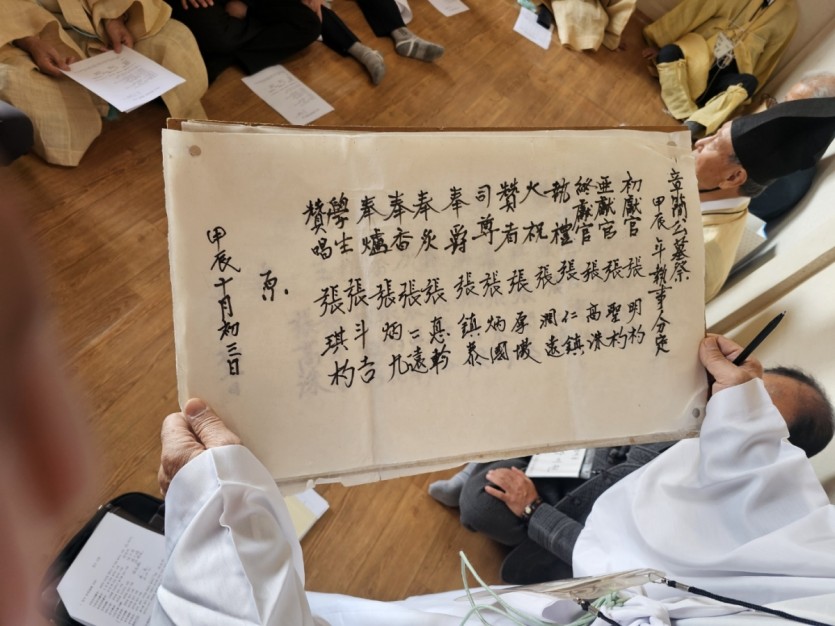 章簡公墓祭
甲辰年執事分定
初獻官 張明杓
亞獻官 張聖杓
終獻官 張高
執禮 張仁鎮
大祝 張潤遠
贊者 張厚
司尊 張炳國
奉爵 張鎮泰
奉炙 張悳幹
奉香 張二遠
奉爐 張炳九
學生 張斗吉
贊唱 張琪杓
甲辰十月初三日